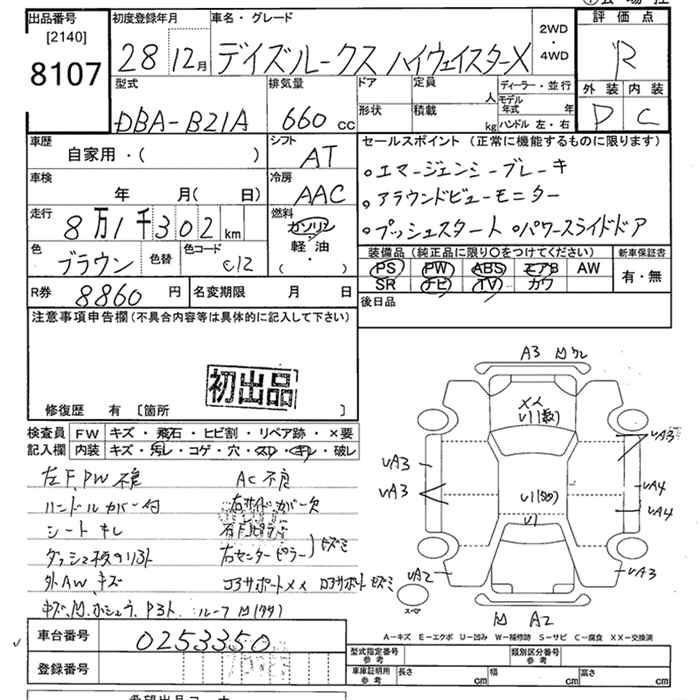 出品番号
[2140]
8107
初度登録年月
28 12月
車名・グレード
デイズルークス ハイウェイスターX
2WD
・
4WD
評価点
R
外装 内装
D C
型式
DBA-B21A
排気量
660 cc
ドア
形状
定員
人
積載
kg
ディーラー・並行
モデル年式 年
ハンドル 左・右
車歴
自家用・( )
シフト
AT
車検
年 月( 日)
冷房
AAC
走行
8万1千302 km
燃料
ガソリン
軽油
( ・ )
色
ブラウン
色替
色コード
C12
R券
8860 円
名変期限 月 日
セールスポイント(正常に機能するものに限ります)
○エマージェンシーブレーキ
○アラウンドビューモニター
○プッシュスタート ○パワースライドドア
装備品(純正品に限り○をつけてください)
PS PW ABS エアB AW
SR ナビ TV カワ
新車保証書
有・無
後日品
注意事項申告欄(不具合内容等は具体的に記入して下さい)
初出品
修復歴 有 [箇所 ]
検査員記入欄
FW キズ・飛石・ヒビ割・リペア跡・×要
内装 キズ・汚レ・コゲ・穴・スレ・キレ・破レ
左F.PW不良 AC不良
ハンドルカバー付 右サイドカバー欠
シートキレ 右Fピラー
右センターピラー
外AWキズ コアサポートメメ コアサポートヒズミ
A3
XX
U1(数)
UA3
UA3
UA3
UA4
UA4
U1
UA2
UA3
スペア
A2
A-キズ E-エクボ U-凹み W-補修跡 S-サビ C-腐食 XX-交換済
車台番号
0253350
登録番号
型式指定番号
参考
類別区分番号
参考
車庫証明用
参考
長さ cm
幅 cm
高さ cm